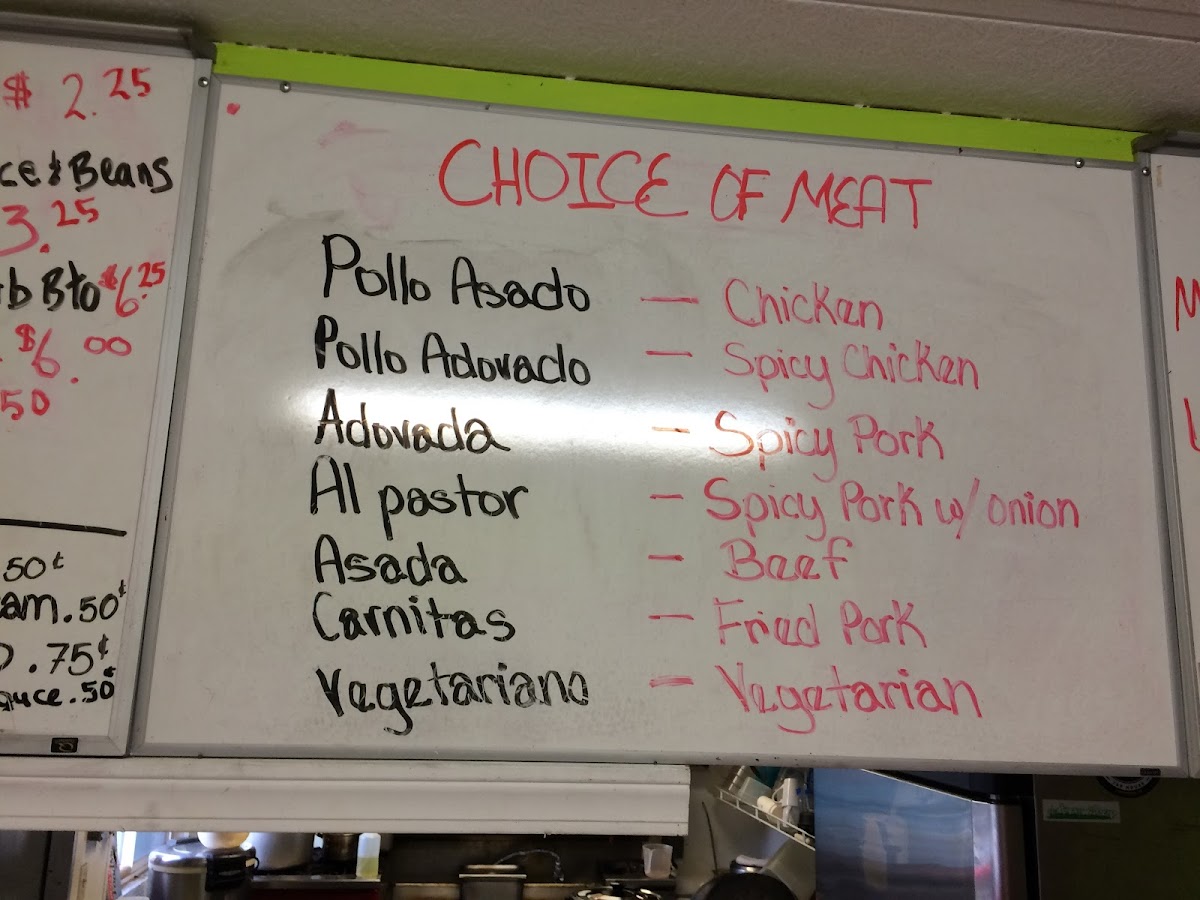 $ 2.25
& Beans
3.25
Bto $6.25
$6.00
50
50¢
.50¢
.75¢
.50¢
CHOICE OF MEAT
Pollo Asado — Chicken
Pollo Adovado — Spicy Chicken
Adovada — Spicy Pork
Al pastor — Spicy Pork w/ onion
Asada — Beef
Carnitas — Fried Pork
Vegetariano — Vegetarian